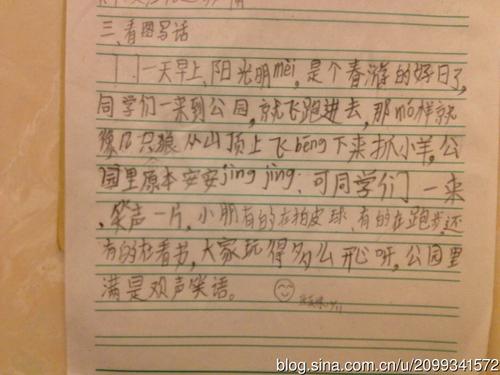 三、看图写话
一天早上,阳光明mèi,是个春游的好日子,
同学们一来到公园,就飞跑进去,那mó样就
像几只狼从山顶上飞bēng下来抓小羊,公
园里原本安安jìng jìng,可同学们一来
,笑声一片,小朋有的在拍皮球,有的在跑步,还
有的在看书,大家玩得多么开心呀,公园里
满是欢声笑语。
blog.sina.com.cn/u/2099341572